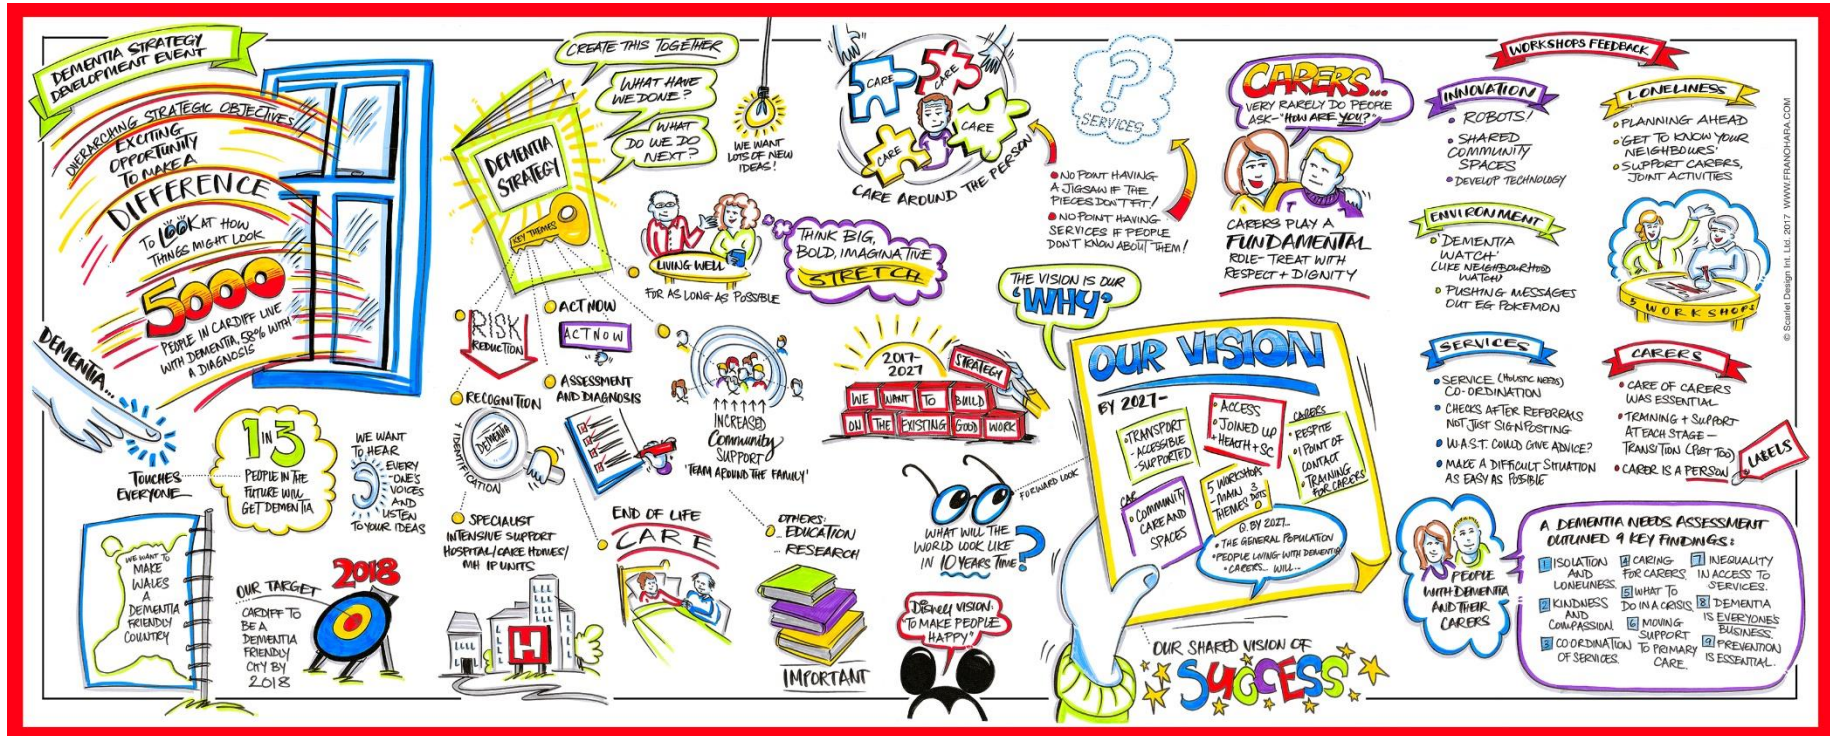 DEMENTIA STRATEGY
DEVELOPMENT EVENT
OVERARCHING STRATEGIC OBJECTIVES
EXCITING
OPPORTUNITY
TO MAKE A
DIFFERENCE
TO LOOK AT HOW
THINGS MIGHT LOOK
5000
PEOPLE IN CARDIFF LIVE
WITH DEMENTIA, 58% WITH
A DIAGNOSIS
DEMENTIA...
TOUCHES
EVERYONE
1 IN 3
PEOPLE IN THE
FUTURE WILL
GET DEMENTIA
WE WANT
TO HEAR
EVERY
-ONE'S
VOICES
AND
LISTEN
TO YOUR IDEAS
WE WANT TO
MAKE
WALES
A
DEMENTIA
FRIENDLY
COUNTRY
OUR TARGET
2018
CARDIFF TO
BE A
DEMENTIA
FRIENDLY
CITY BY
2018
CREATE THIS TOGETHER
WHAT HAVE
WE DONE?
WHAT
DO WE DO
NEXT?
DEMENTIA
STRATEGY
KEY THEMES
WE WANT
LOTS OF NEW
IDEAS!
LIVING WELL
FOR AS LONG AS POSSIBLE
THINK BIG,
BOLD, IMAGINATIVE
STRETCH
RISK
REDUCTION
ACT NOW
ACT NOW
RECOGNITION
IDENTIFICATION
DEMENTIA
ASSESSMENT
AND DIAGNOSIS
INCREASED
COMMUNITY
SUPPORT
'TEAM AROUND THE FAMILY'
SPECIALIST
INTENSIVE SUPPORT
HOSPITAL/CARE HOMES/
MH IP UNITS
H
END OF LIFE
CARE
OTHERS:
... EDUCATION
... RESEARCH
IMPORTANT
CARE
CARE
CARE
CARE
CARE AROUND THE PERSON
?
SERVICES
NO POINT HAVING
A JIGSAW IF THE
PIECES DON'T FIT!
NO POINT HAVING
SERVICES IF PEOPLE
DON'T KNOW ABOUT THEM!
2017-
2027
STRATEGY
WE WANT TO BUILD
ON THE EXISTING GOOD WORK
FORWARD LOOK
WHAT WILL THE
WORLD LOOK LIKE
IN 10 YEARS TIME?
DISNEY VISION:
"TO MAKE PEOPLE
HAPPY"
CARERS...
VERY RARELY DO PEOPLE
ASK-"HOW ARE YOU?"
CARERS PLAY A
FUNDAMENTAL
ROLE-TREAT WITH
RESPECT + DIGNITY
THE VISION IS OUR
'WHY'
OUR VISION
BY 2027-
TRANSPORT
- ACCESSIBLE
- SUPPORTED
ACCESS
JOINED UP
+HEALTH+SC
CARERS
RESPITE
1 POINT OF
CONTACT
TRAINING
FOR CARERS
CAR
COMMUNITY
CARE AND
SPACES
5 WORKSHOPS
-MAIN 3
THEMES DOTS
Q. BY 2027...
THE GENERAL POPULATION
PEOPLE LIVING WITH DEMENTIA
CARERS... WILL...
OUR SHARED VISION OF
SUCCESS
WORKSHOPS FEEDBACK
INNOVATION
ROBOTS!
SHARED
COMMUNITY
SPACES
DEVELOP TECHNOLOGY
LONELINESS
PLANNING AHEAD
'GET TO KNOW YOUR
NEIGHBOURS'
SUPPORT CARERS,
JOINT ACTIVITIES
ENVIRONMENT
'DEMENTIA
WATCH'
(LIKE NEIGHBOURHOOD
WATCH)
PUSHING MESSAGES
OUT EG POKEMON
5 WORKSHOPS
SERVICES
SERVICE (HOLISTIC NEEDS)
CO-ORDINATION
CHECKS AFTER REFERRALS
NOT JUST SIGNPOSTING
W.A.S.T. COULD GIVE ADVICE?
MAKE A DIFFICULT SITUATION
AS EASY AS POSSIBLE
CARERS
CARE OF CARERS
WAS ESSENTIAL
TRAINING + SUPPORT
AT EACH STAGE -
TRANSITION (POST TOO)
CARER IS A PERSON
LABELS
PEOPLE
WITH DEMENTIA
AND THEIR
CARERS
A DEMENTIA NEEDS ASSESSMENT
OUTLINED 9 KEY FINDINGS:
1 ISOLATION
AND
LONELINESS.
2 KINDNESS
AND
COMPASSION.
3 COORDINATION
OF SERVICES.
4 CARING
FOR CARERS.
5 WHAT TO
DO IN A CRISIS.
6 MOVING
SUPPORT
TO PRIMARY
CARE.
7 INEQUALITY
IN ACCESS TO
SERVICES.
8 DEMENTIA
IS EVERYONE'S
BUSINESS.
9 PREVENTION
IS ESSENTIAL.
© Scarlet Design Int. Ltd. 2017 WWW.FRANOHARA.COM